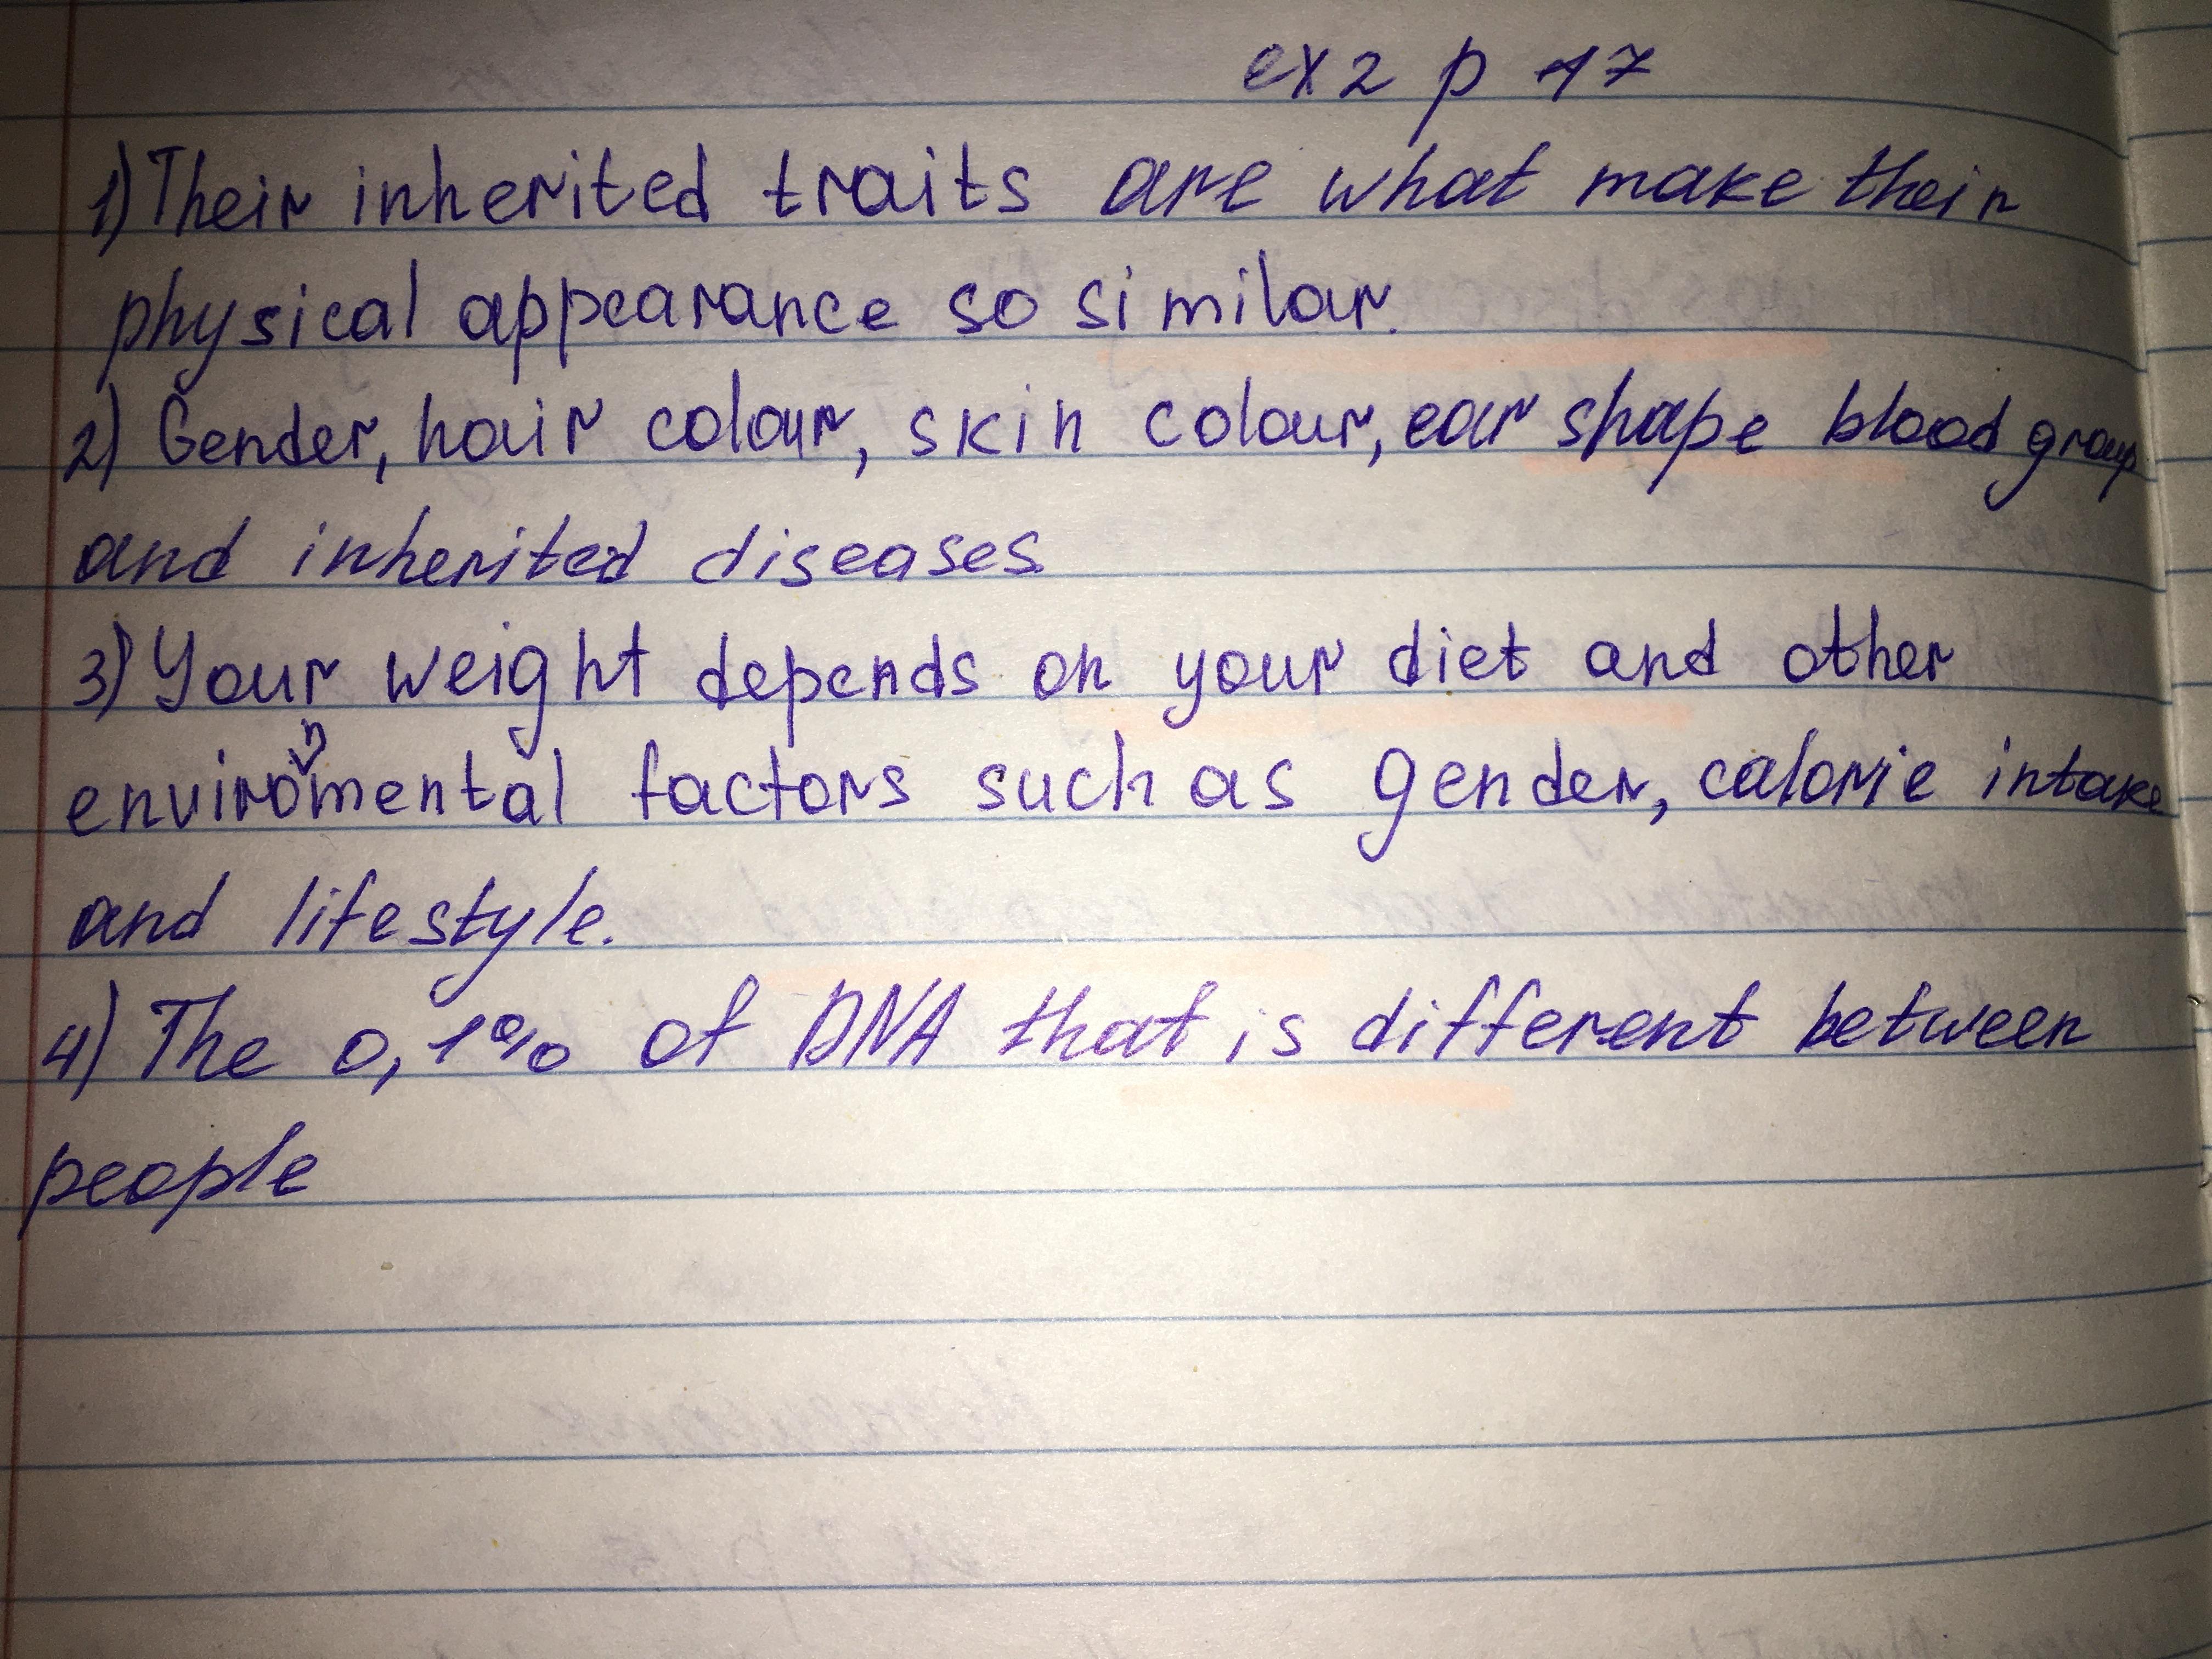 ex 2 p 17
1) Their inherited traits are what make their
physical appearance so similar.
2) Gender, hair colour, skin colour, ear shape blood group
and inherited diseases
3) Your weight depends on your diet and other
environmental factors such as gender, calorie intake
and lifestyle.
4) The 0,1% of DNA that is different between
people